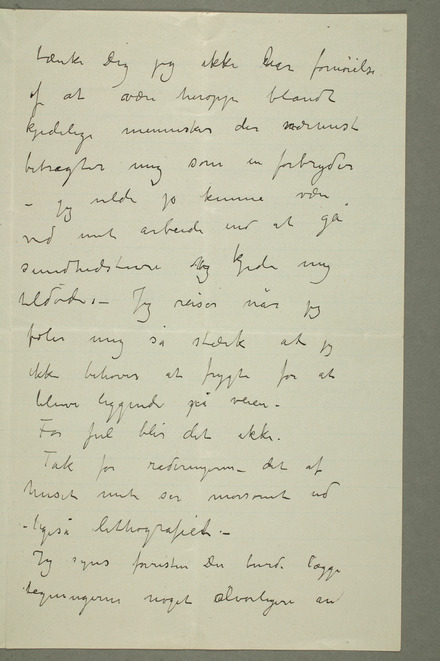 tænke Dig jeg ikke har fornöielse
af at være heroppe blandt
kjedelige mennesker der nærmest
betragter mig som en forbryder
– jeg vilde jo kunne være
ved mit arbeide end at gå
sundhedsture og kjede mig
tildöde. – Jeg reiser når jeg
föler mig så stærk at jeg
ikke behöver at frygte for at
blive liggende på veien –
För jul blir det ikke.
Tak for raderingerne – det af
huset mit ser morsomt ud
– ligeså lithografiet –
Jeg synes forresten Du burde lægge
tegningerne noget alvorligere an